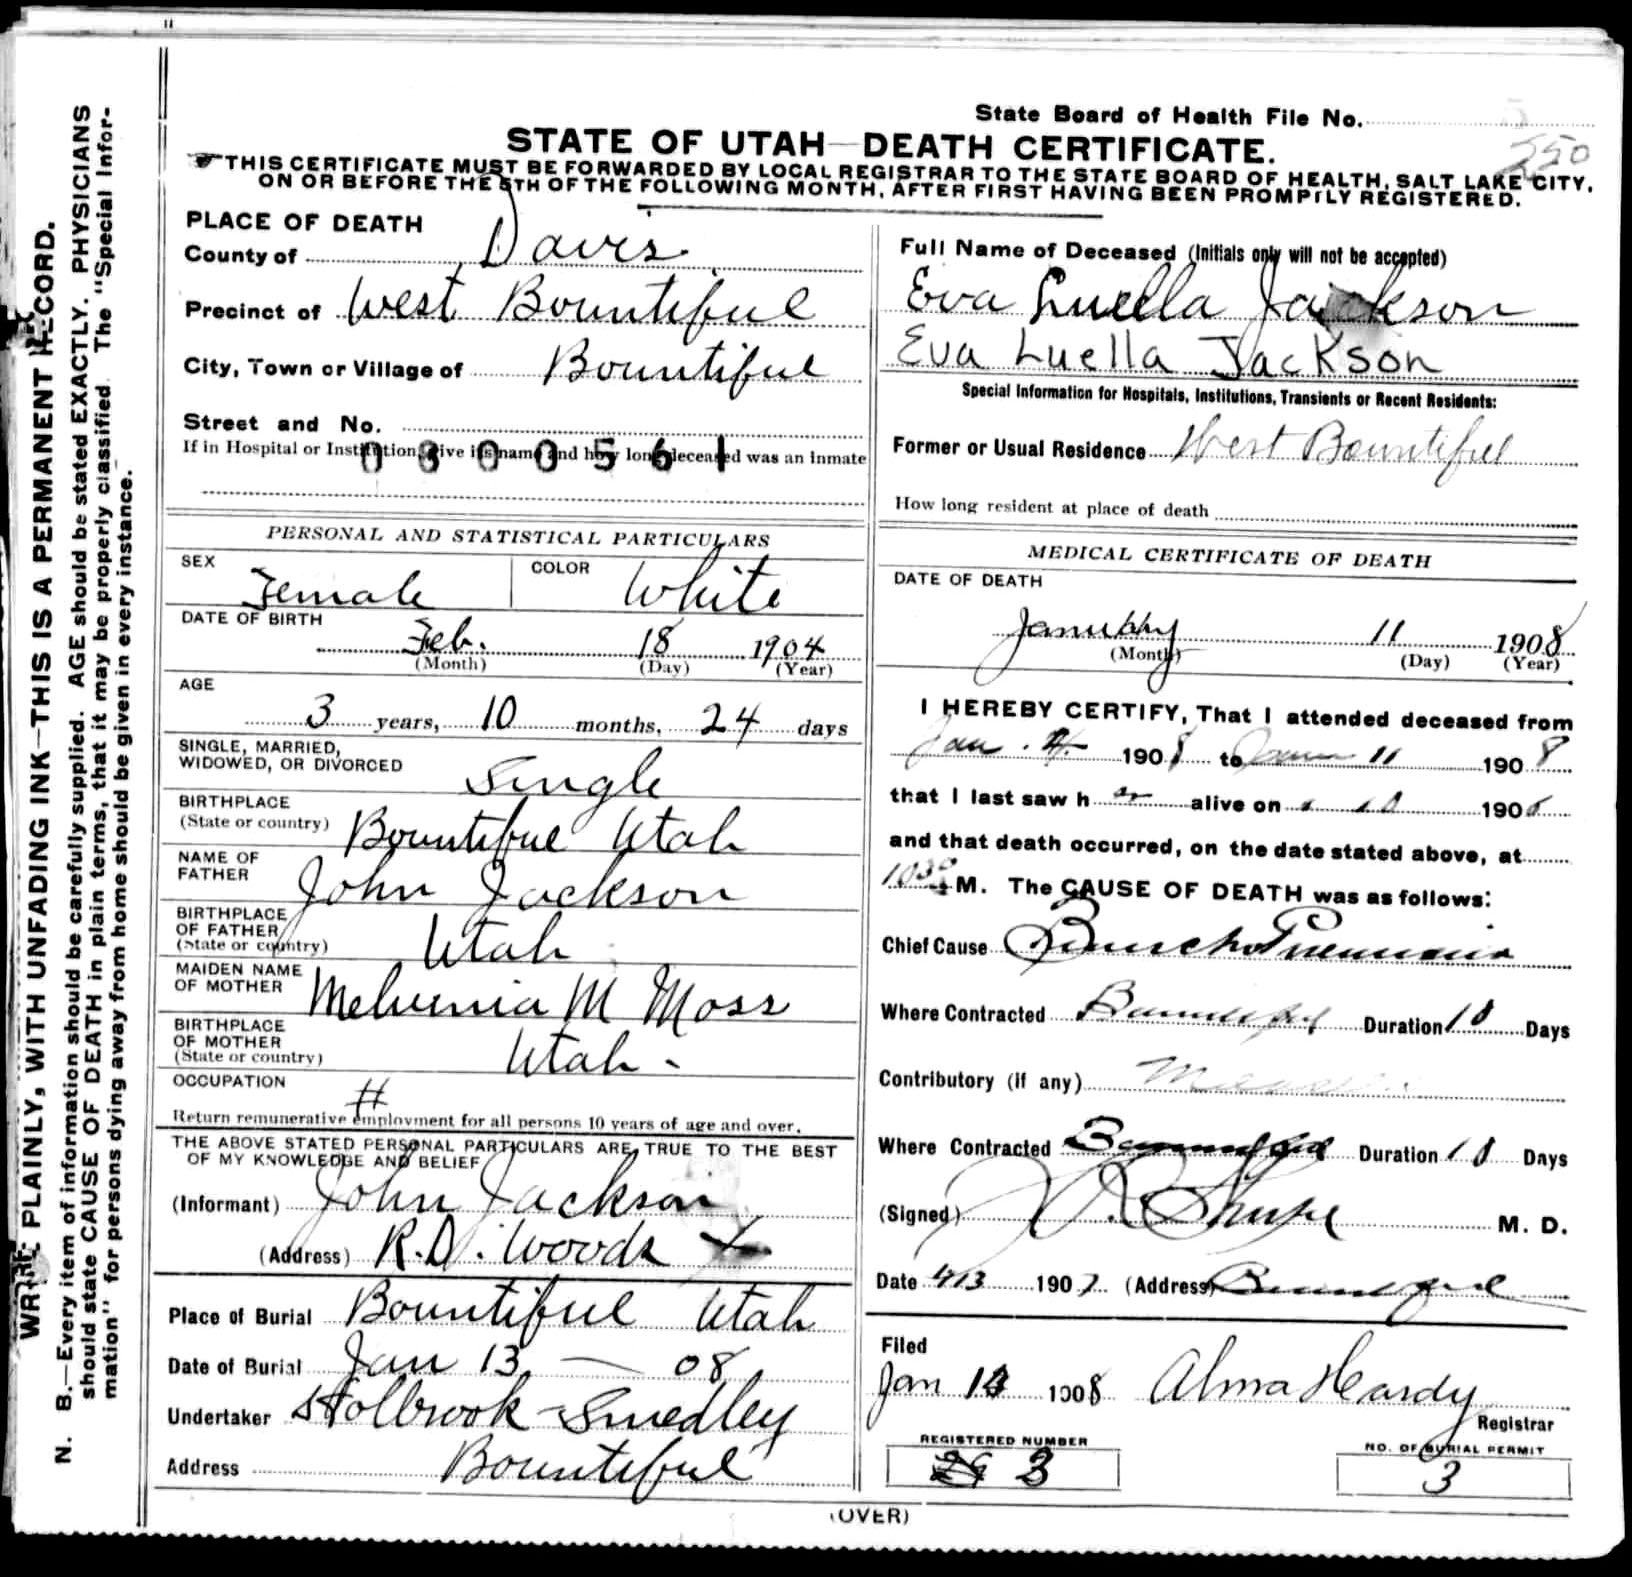 State Board of Health File No.
250
STATE OF UTAH—DEATH CERTIFICATE.
THIS CERTIFICATE MUST BE FORWARDED BY LOCAL REGISTRAR TO THE STATE BOARD OF HEALTH, SALT LAKE CITY,
ON OR BEFORE THE 5TH OF THE FOLLOWING MONTH, AFTER FIRST HAVING BEEN PROMPTLY REGISTERED.
PLACE OF DEATH
County of Davis
Precinct of West Bountiful
City, Town or Village of Bountiful
Street and No.
If in Hospital or Institution, give its name and how long deceased was an inmate
0300561
Full Name of Deceased (Initials only will not be accepted)
Eva Luella Jackson
Eva Luella Jackson
Special Information for Hospitals, Institutions, Transients or Recent Residents:
Former or Usual Residence West Bountiful
How long resident at place of death
PERSONAL AND STATISTICAL PARTICULARS
SEX Female COLOR White
DATE OF BIRTH
Feb. 18 1904
(Month) (Day) (Year)
AGE
3 years, 10 months, 24 days
SINGLE, MARRIED,
WIDOWED, OR DIVORCED Single
BIRTHPLACE
(State or country) Bountiful Utah
NAME OF
FATHER John Jackson
BIRTHPLACE
OF FATHER
(State or country) Utah
MAIDEN NAME
OF MOTHER Melvinia M Moss
BIRTHPLACE
OF MOTHER
(State or country) Utah -
OCCUPATION
#
Return remunerative employment for all persons 10 years of age and over.
THE ABOVE STATED PERSONAL PARTICULARS ARE TRUE TO THE BEST
OF MY KNOWLEDGE AND BELIEF
(Informant) John Jackson
(Address) R.D. Woods X
Place of Burial Bountiful Utah
Date of Burial Jan 13 — 08
Undertaker Holbrook-Smedley
Address Bountiful
MEDICAL CERTIFICATE OF DEATH
DATE OF DEATH
11 1908
(Month) (Day) (Year)
I HEREBY CERTIFY, That I attended deceased from
Jan. 4 1908 to 11 1908
that I last saw h er alive on 10 190
and that death occurred, on the date stated above, at
1030 M. The CAUSE OF DEATH was as follows:
Chief Cause Broncho Pneumonia
Where Contracted Bountiful Duration 10 Days
Contributory (If any)
Where Contracted Bountiful Duration 10 Days
(Signed) M. D.
Date 190 (Address) Bountiful
Filed
Jan 1908 Alma Hardy
Registrar
REGISTERED NUMBER
3
NO. OF BURIAL PERMIT
3
(OVER)
WRITE PLAINLY, WITH UNFADING INK—THIS IS A PERMANENT RECORD.
N. B.—Every item of information should be carefully supplied. AGE should be stated EXACTLY. PHYSICIANS
should state CAUSE OF DEATH in plain terms, that it may be properly classified. The "Special Infor-
mation" for persons dying away from home should be given in every instance.